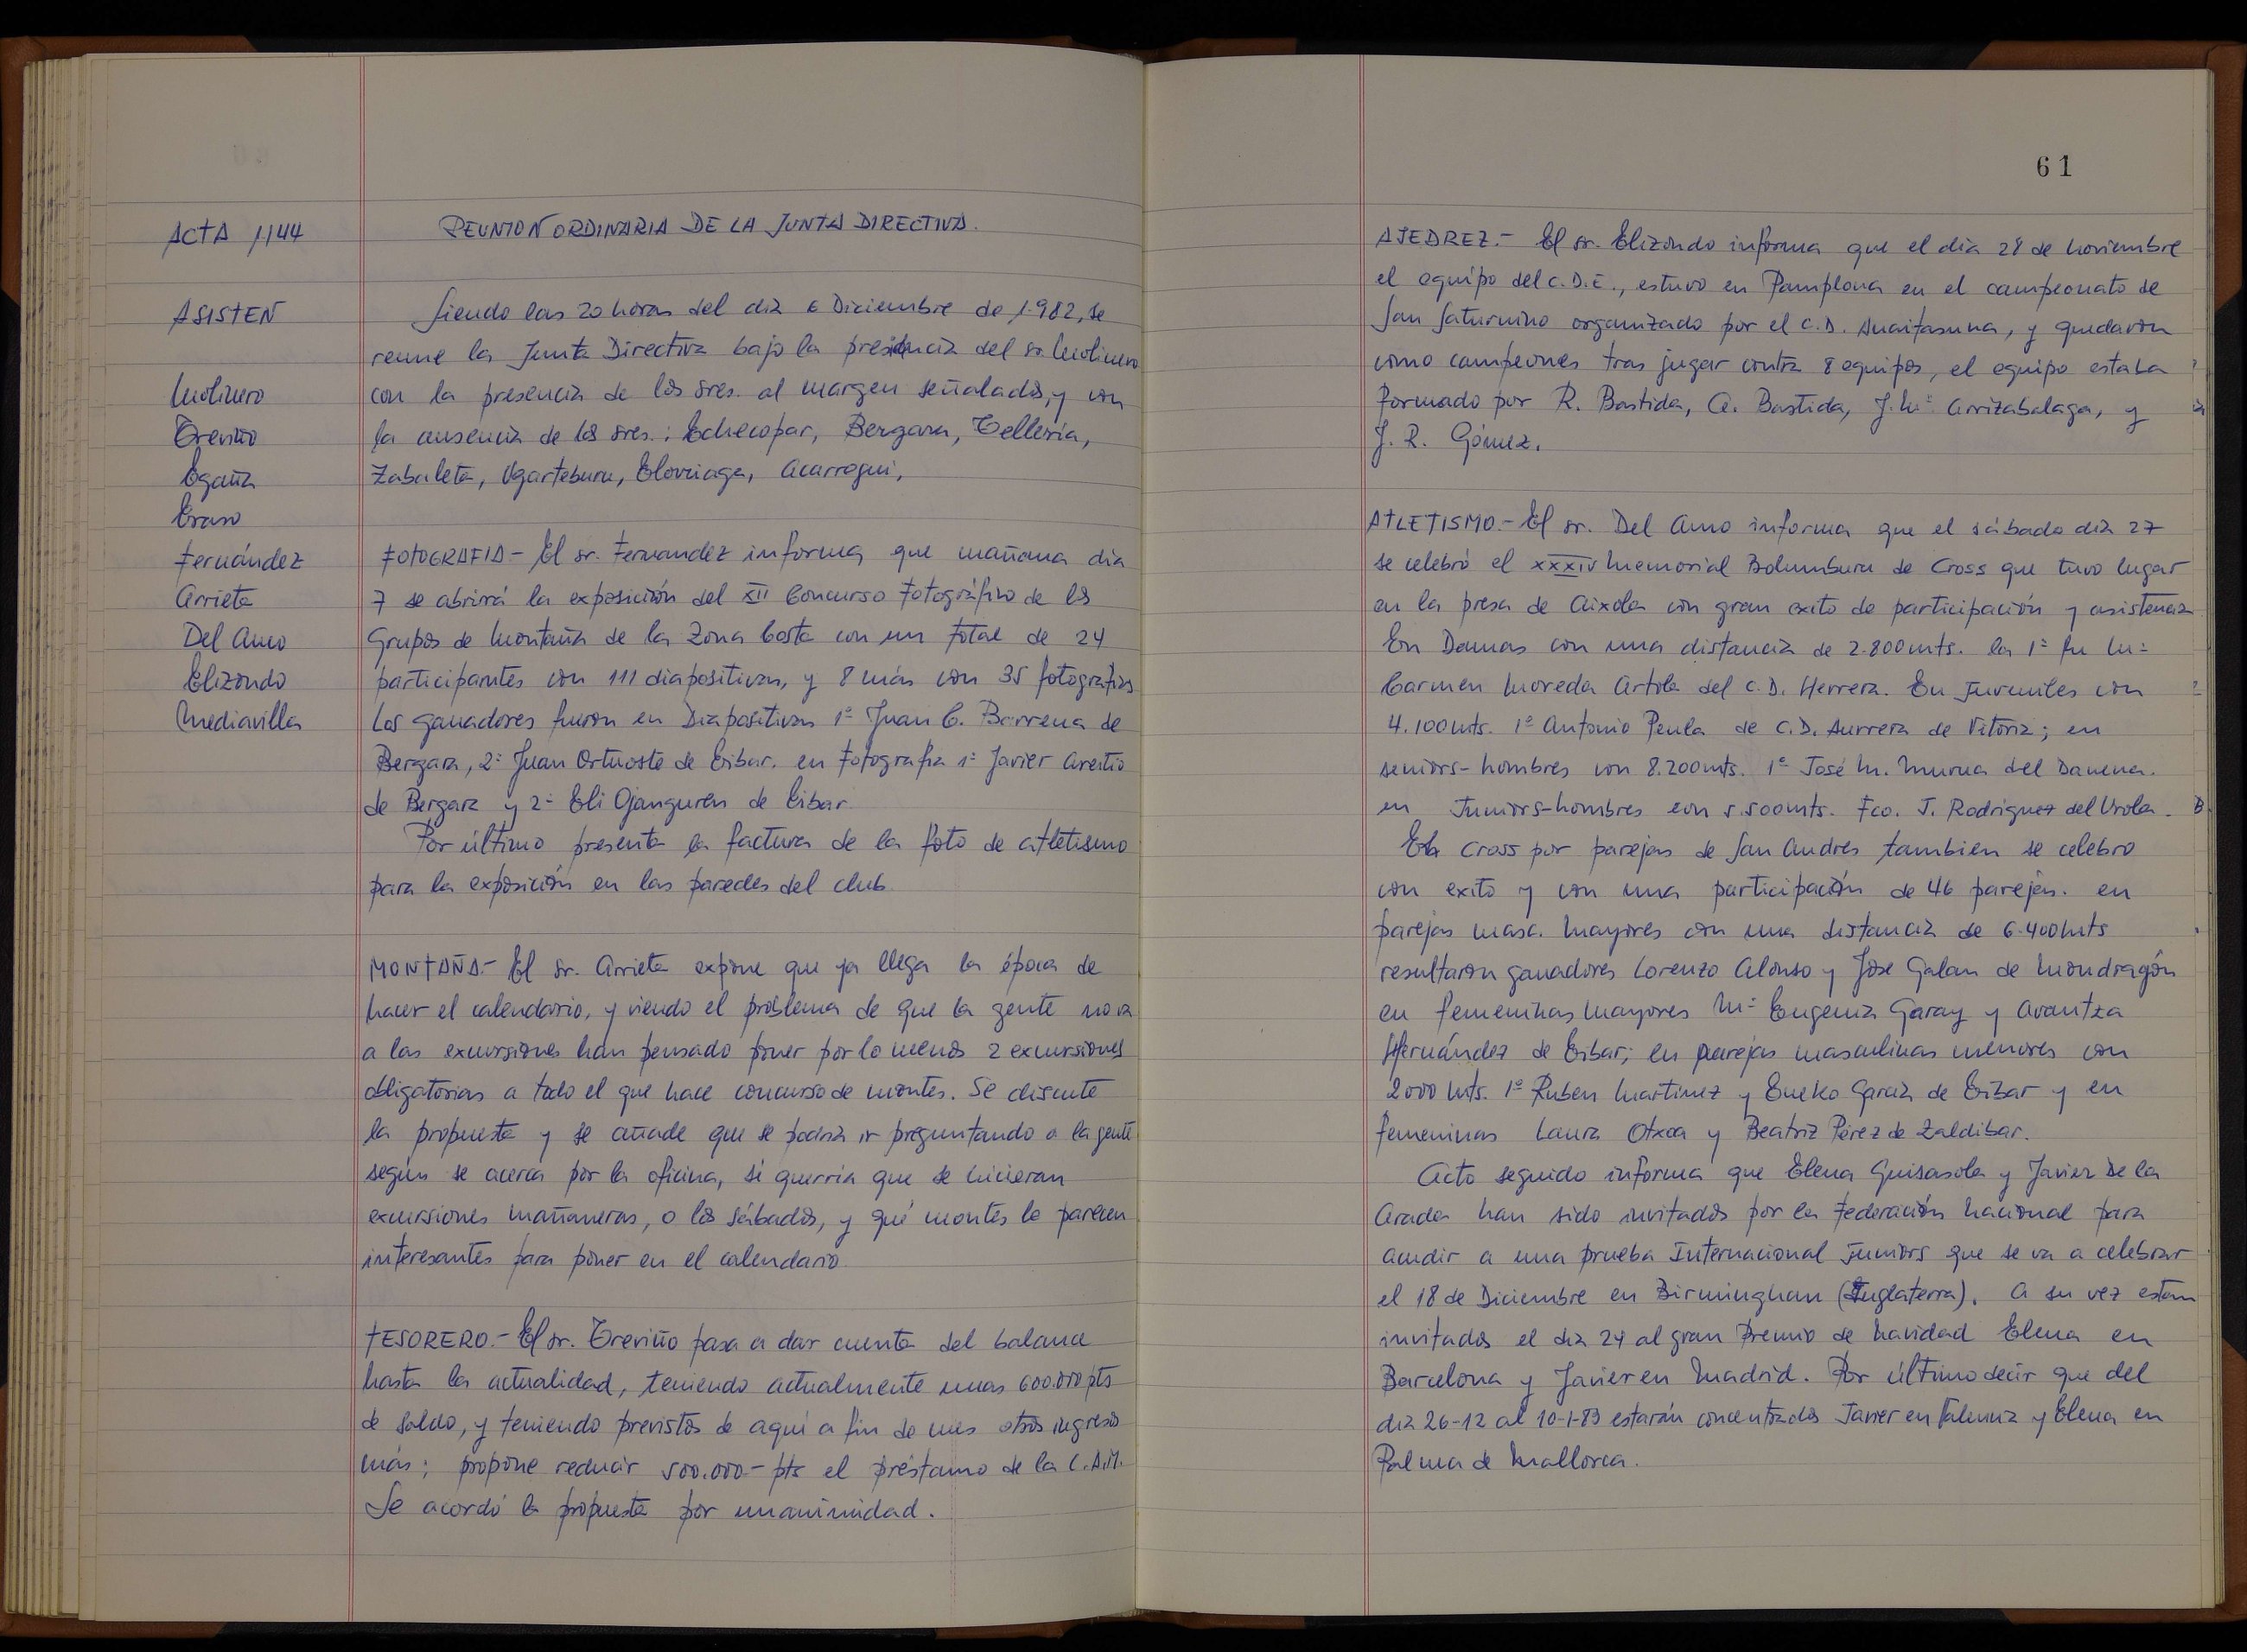 ACTA 1144
REUNION ORDINARIA DE LA JUNTA DIRECTIVA.
ASISTEN
Molinero
Treviño
Egaña
Eraso
Fernández
Arrieta
Del Amo
Elizondo
Mediavilla
Siendo las 20 horas del dia 6 Diciembre de 1.982, se
reune la Junta Directiva bajo la presidencia del sr. Molinero
con la presencia de los sres. al margen señalados, y con
la ausencia de los sres.: Echecopar, Bergara, Telleria,
Zabaleta, Ugarteburu, Elorriaga, Acarregui,
FOTOGRAFIA- El sr. Fernandez informa que mañana dia
7 se abrirá la exposición del XII Concurso Fotográfico de los
Grupos de Montaña de la Zona Costa con un total de 24
participantes con 111 diapositivas, y 8 más con 35 fotografias
Los ganadores fueron en Diapositivas 1º Juan C. Barrena de
Bergara, 2º Juan Ortuoste de Eibar. en Fotografia 1º Javier Areitio
de Bergara y 2º Eli Ojanguren de Eibar.
Por último presenta la factura de la foto de atletismo
para la exposición en las paredes del club.
MONTAÑA.- El sr. Arrieta expone que ya llega la época de
hacer el calendario, y viendo el problema de que la gente no va
a las excursiones han pensado poner por lo menos 2 excursiones
obligatorias a todo el que hace concurso de montes. Se discute
la propuesta y se añade que se podria ir preguntando a la gente
según se acerca por la oficina, si querria que se hicieran
excursiones mañaneras, o los sábados, y qué montes le parecen
interesantes para poner en el calendario.
TESORERO.- El sr. Treviño pasa a dar cuenta del balance
hasta la actualidad, teniendo actualmente unas 600.000 pts
de saldo, y teniendo previstos de aqui a fin de mes otros ingresos
más; propone reducir 500.000.- pts el préstamo de la C.A.M.
Se acordó la propuesta por unanimidad.
61
AJEDREZ.- El sr. Elizondo informa que el dia 28 de Noviembre
el equipo del C.D.E., estuvo en Pamplona en el campeonato de
San Saturnino organizado por el C.D. Anaitasuna, y quedaron
como campeones tras jugar contra 8 equipos, el equipo estaba
formado por R. Bastida, A. Bastida, J.Mª Arrizabalaga, y
J. R. Gómez.
ATLETISMO.- El sr. Del Amo informa que el sábado dia 27
se celebró el XXXIV Memorial Bolumburu de Cross que tuvo lugar
en la presa de Aixola con gran exito de participación y asistencia
En Damas con una distancia de 2.800 mts. la 1ª fue Mª
Carmen Moreda Artola del C.D. Herrera. En Juveniles con
4.100 mts. 1º Antonio Peula de C.D. Aurrera de Vitoria; en
seniors-hombres con 8.200 mts. 1º José M. Murua del Danena.
en Juniors-hombres con 5.500 mts. Fco. J. Rodriguez del Urola.
El Cross por parejas de San Andres tambien se celebro
con exito y con una participación de 46 parejas. en
parejas masc. Mayores con una distancia de 6.400 mts
resultaron ganadores Lorenzo Alonso y Jose Galan de Mondragón
en femeninas mayores Mª Eugenia Garay y Arantza
Hernández de Eibar; en parejas masculinas menores con
2000 mts. 1º Ruben Martinez y Eneko Garcia de Eibar y en
femeninas Laura Otxoa y Beatriz Pérez de Zaldibar.
Acto seguido informa que Elena Guisasola y Javier De la
Arada han sido invitados por la Federación Nacional para
acudir a una prueba Internacional Juniors que se va a celebrar
el 18 de Diciembre en Birminghan (Inglaterra). A su vez estan
invitados el dia 24 al gran Premio de Navidad Elena en
Barcelona y Javier en Madrid. Por último decir que del
dia 26-12 al 10-1-83 estarán concentrados Javier en Palencia y Elena en
Palma de Mallorca.